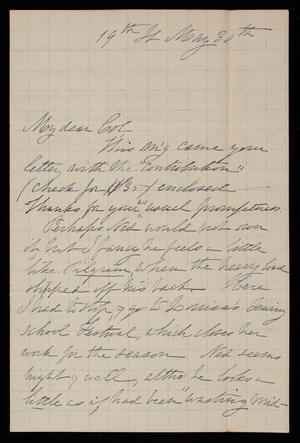 19th St May 30th
My dear Col
This m'g came your
letter with the "Contribution"
(check for $3=) enclosed
Thanks for your usual promptness.
Perhaps Ned would not own
it but I fancy he feels a little
like Pilgrim when the heavy load
slipped off his back Here
I had to stop, & go to Louisa's Sewing
School Festival, which closes her
work for the season Ned seems
mighty well, altho' he looks a
little as if had been "wasting mid-